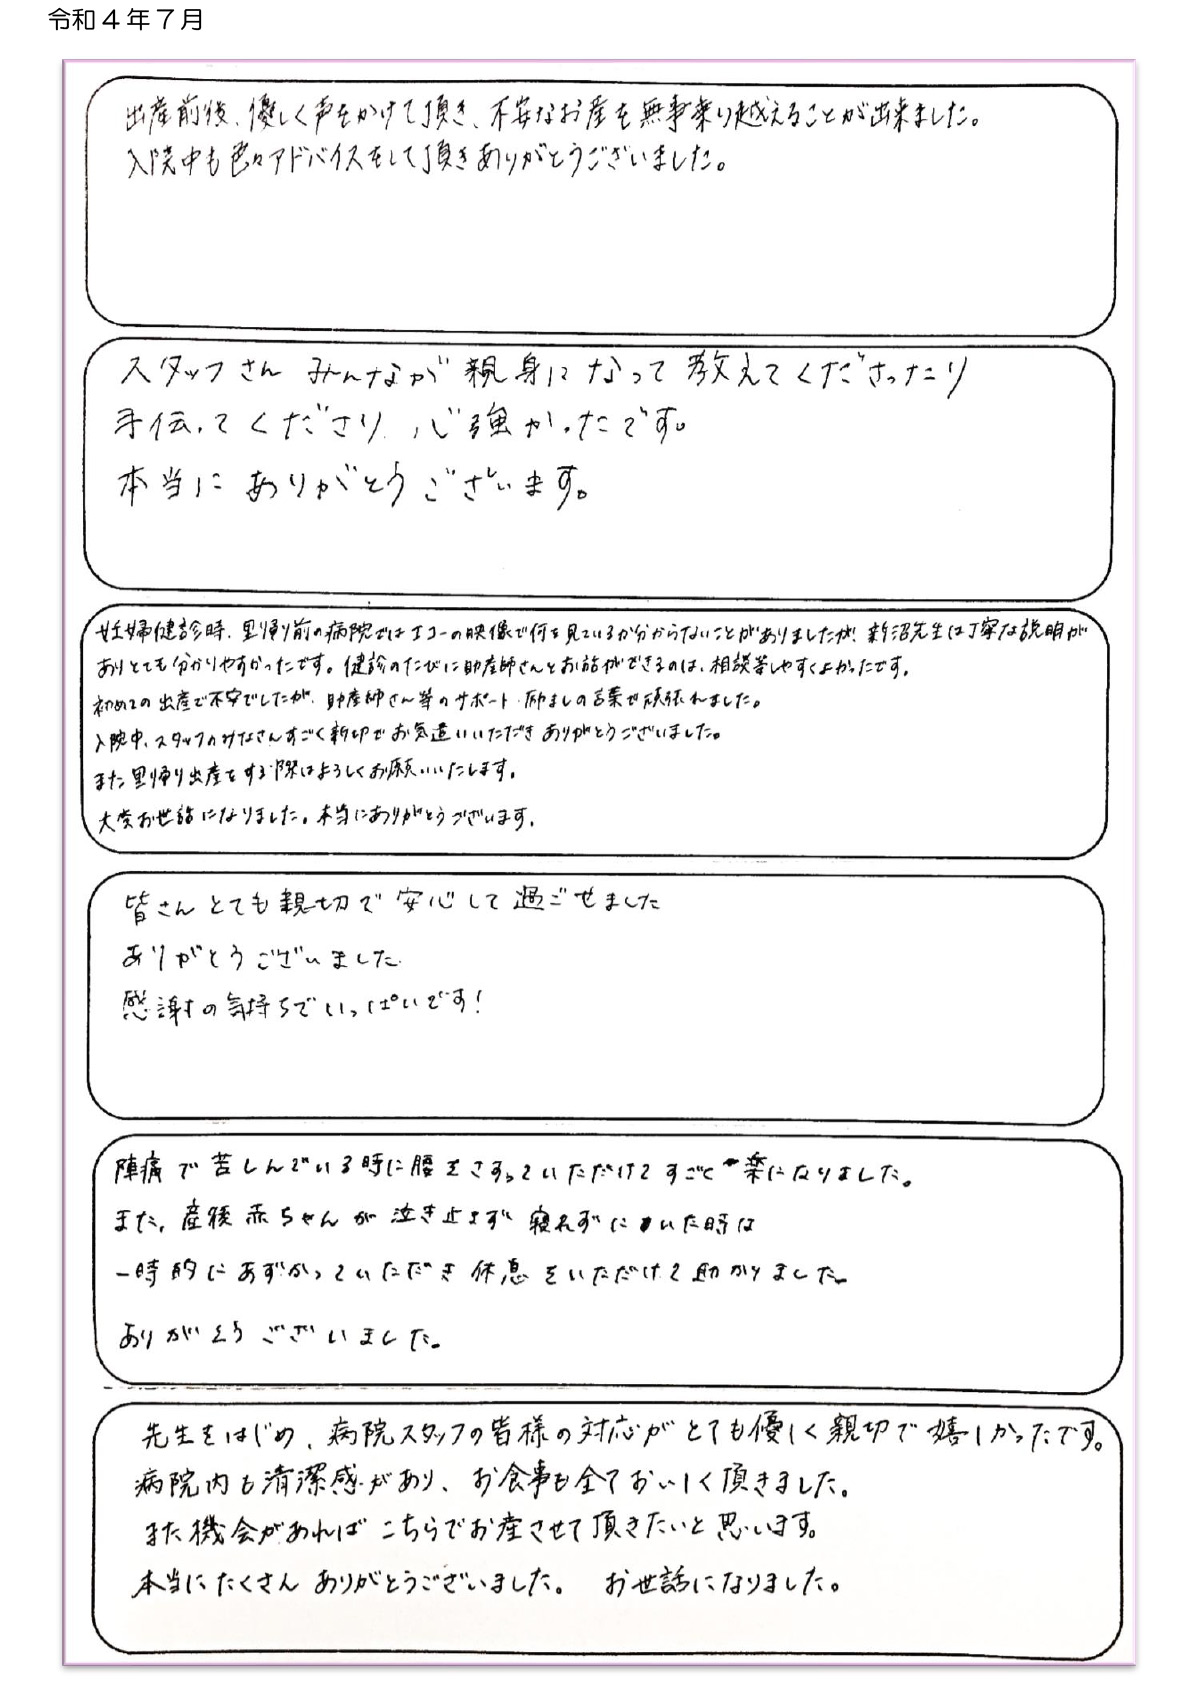 令和４年７月
出産前後、優しく声をかけて頂き、不安なお産を無事乗り越えることが出来ました。
入院中も色々アドバイスをして頂きありがとうございました。
スタッフさん みんなが 親身になって 教えてくださったり
手伝ってくださり、心強かったです。
本当に ありがとう ございます。
妊婦健診時、里帰り前の病院ではエコーの映像で何を見ているか分からないことがありましたが、新沼先生は丁寧な説明が
ありとても分かりやすかったです。健診のたびに助産師さんとお話ができるのは、相談等しやすくよかったです。
初めての出産で不安でしたが、助産師さん等のサポート・励ましの言葉で頑張れました。
入院中、スタッフのみなさんすごく親切でお気遣いいただきありがとうございました。
また里帰り出産をする際はよろしくお願いいたします。
大変お世話になりました。本当にありがとうございます。
皆さん とても 親切で 安心して 過ごせました
ありがとうございました
感謝の気持ちでいっぱいです！
陣痛で苦しんでいる時に腰をさすっていただけてすごく楽になりました。
また、産後赤ちゃんが泣き止まず 寝れずにいた時は
一時的にあずかっていただき 休息をいただけて助かりました。
ありがとうございました。
先生をはじめ、病院スタッフの皆様の対応がとても優しく親切で嬉しかったです。
病院内も清潔感があり、お食事も全ておいしく頂きました。
また機会があれば こちらでお産させて頂きたいと思います。
本当にたくさん ありがとうございました。 お世話になりました。